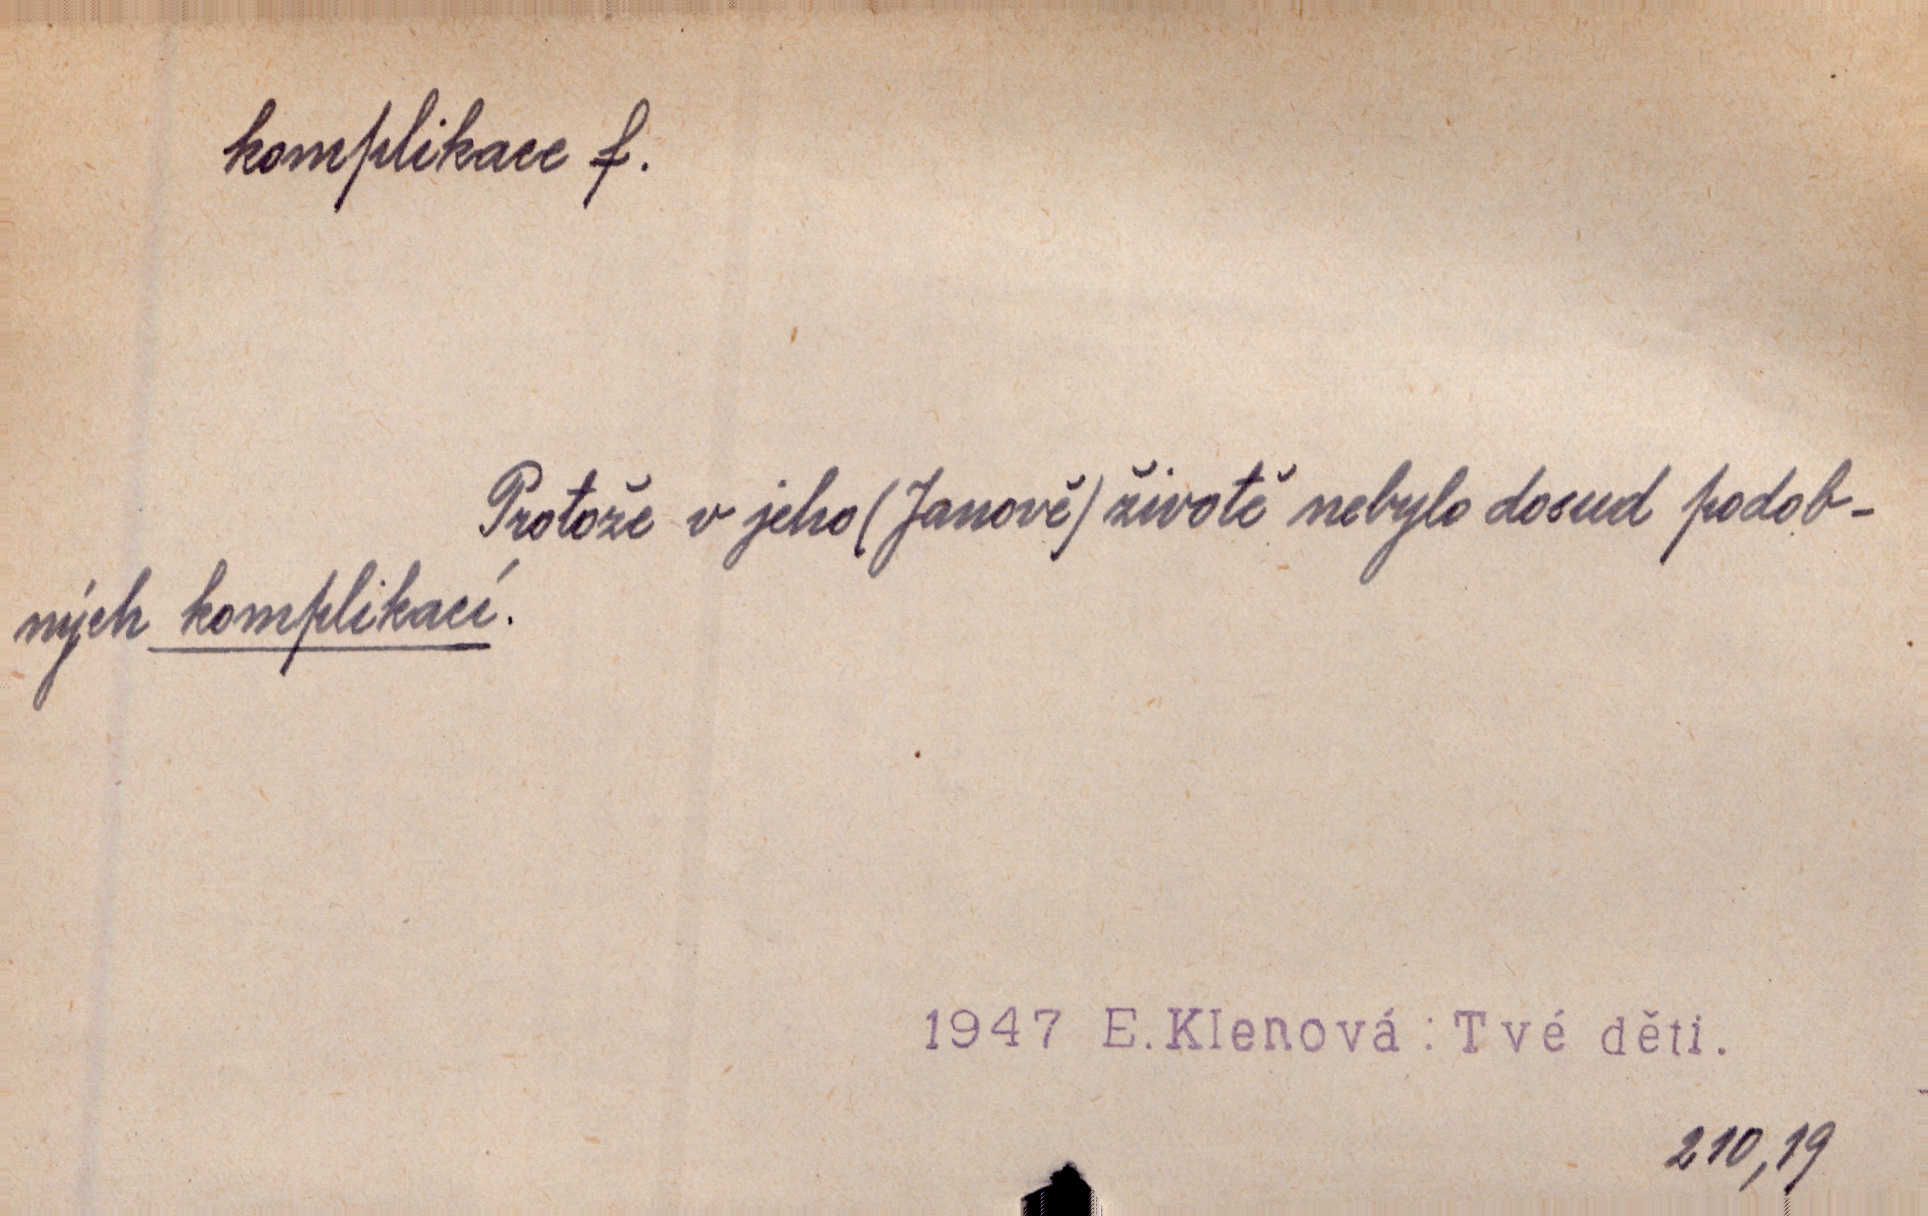 komplikace f.
Protože v jeho (Janově) životě nebylo dosud podob-
ných komplikací.
1947 E.Klenová: Tvé děti.
210,19